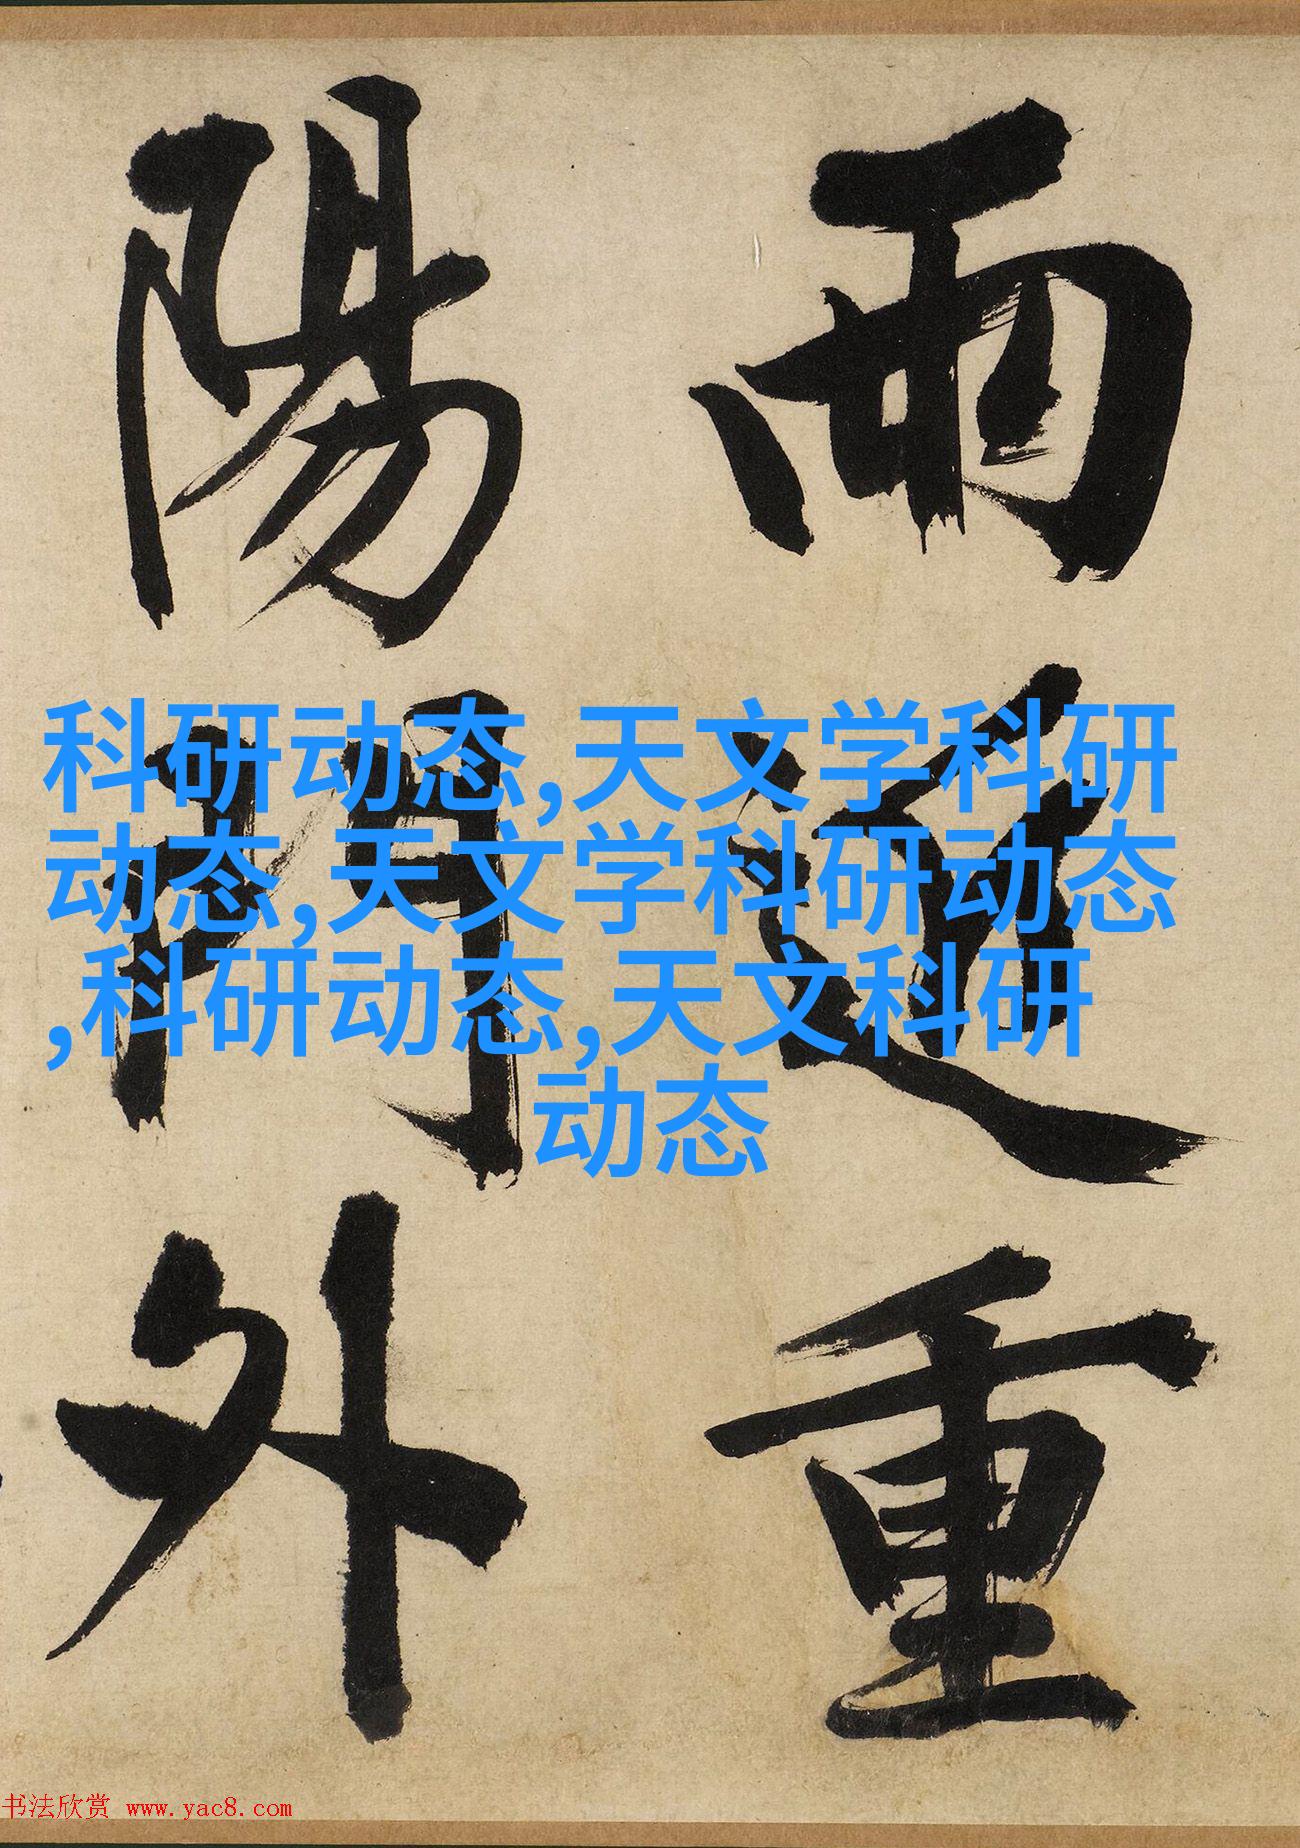 雨過重
陽門外
科研动态,天文学科研
动态,天文学科研动态
,科研动态,天文科研
动态
书法欣赏 www.yac8.com